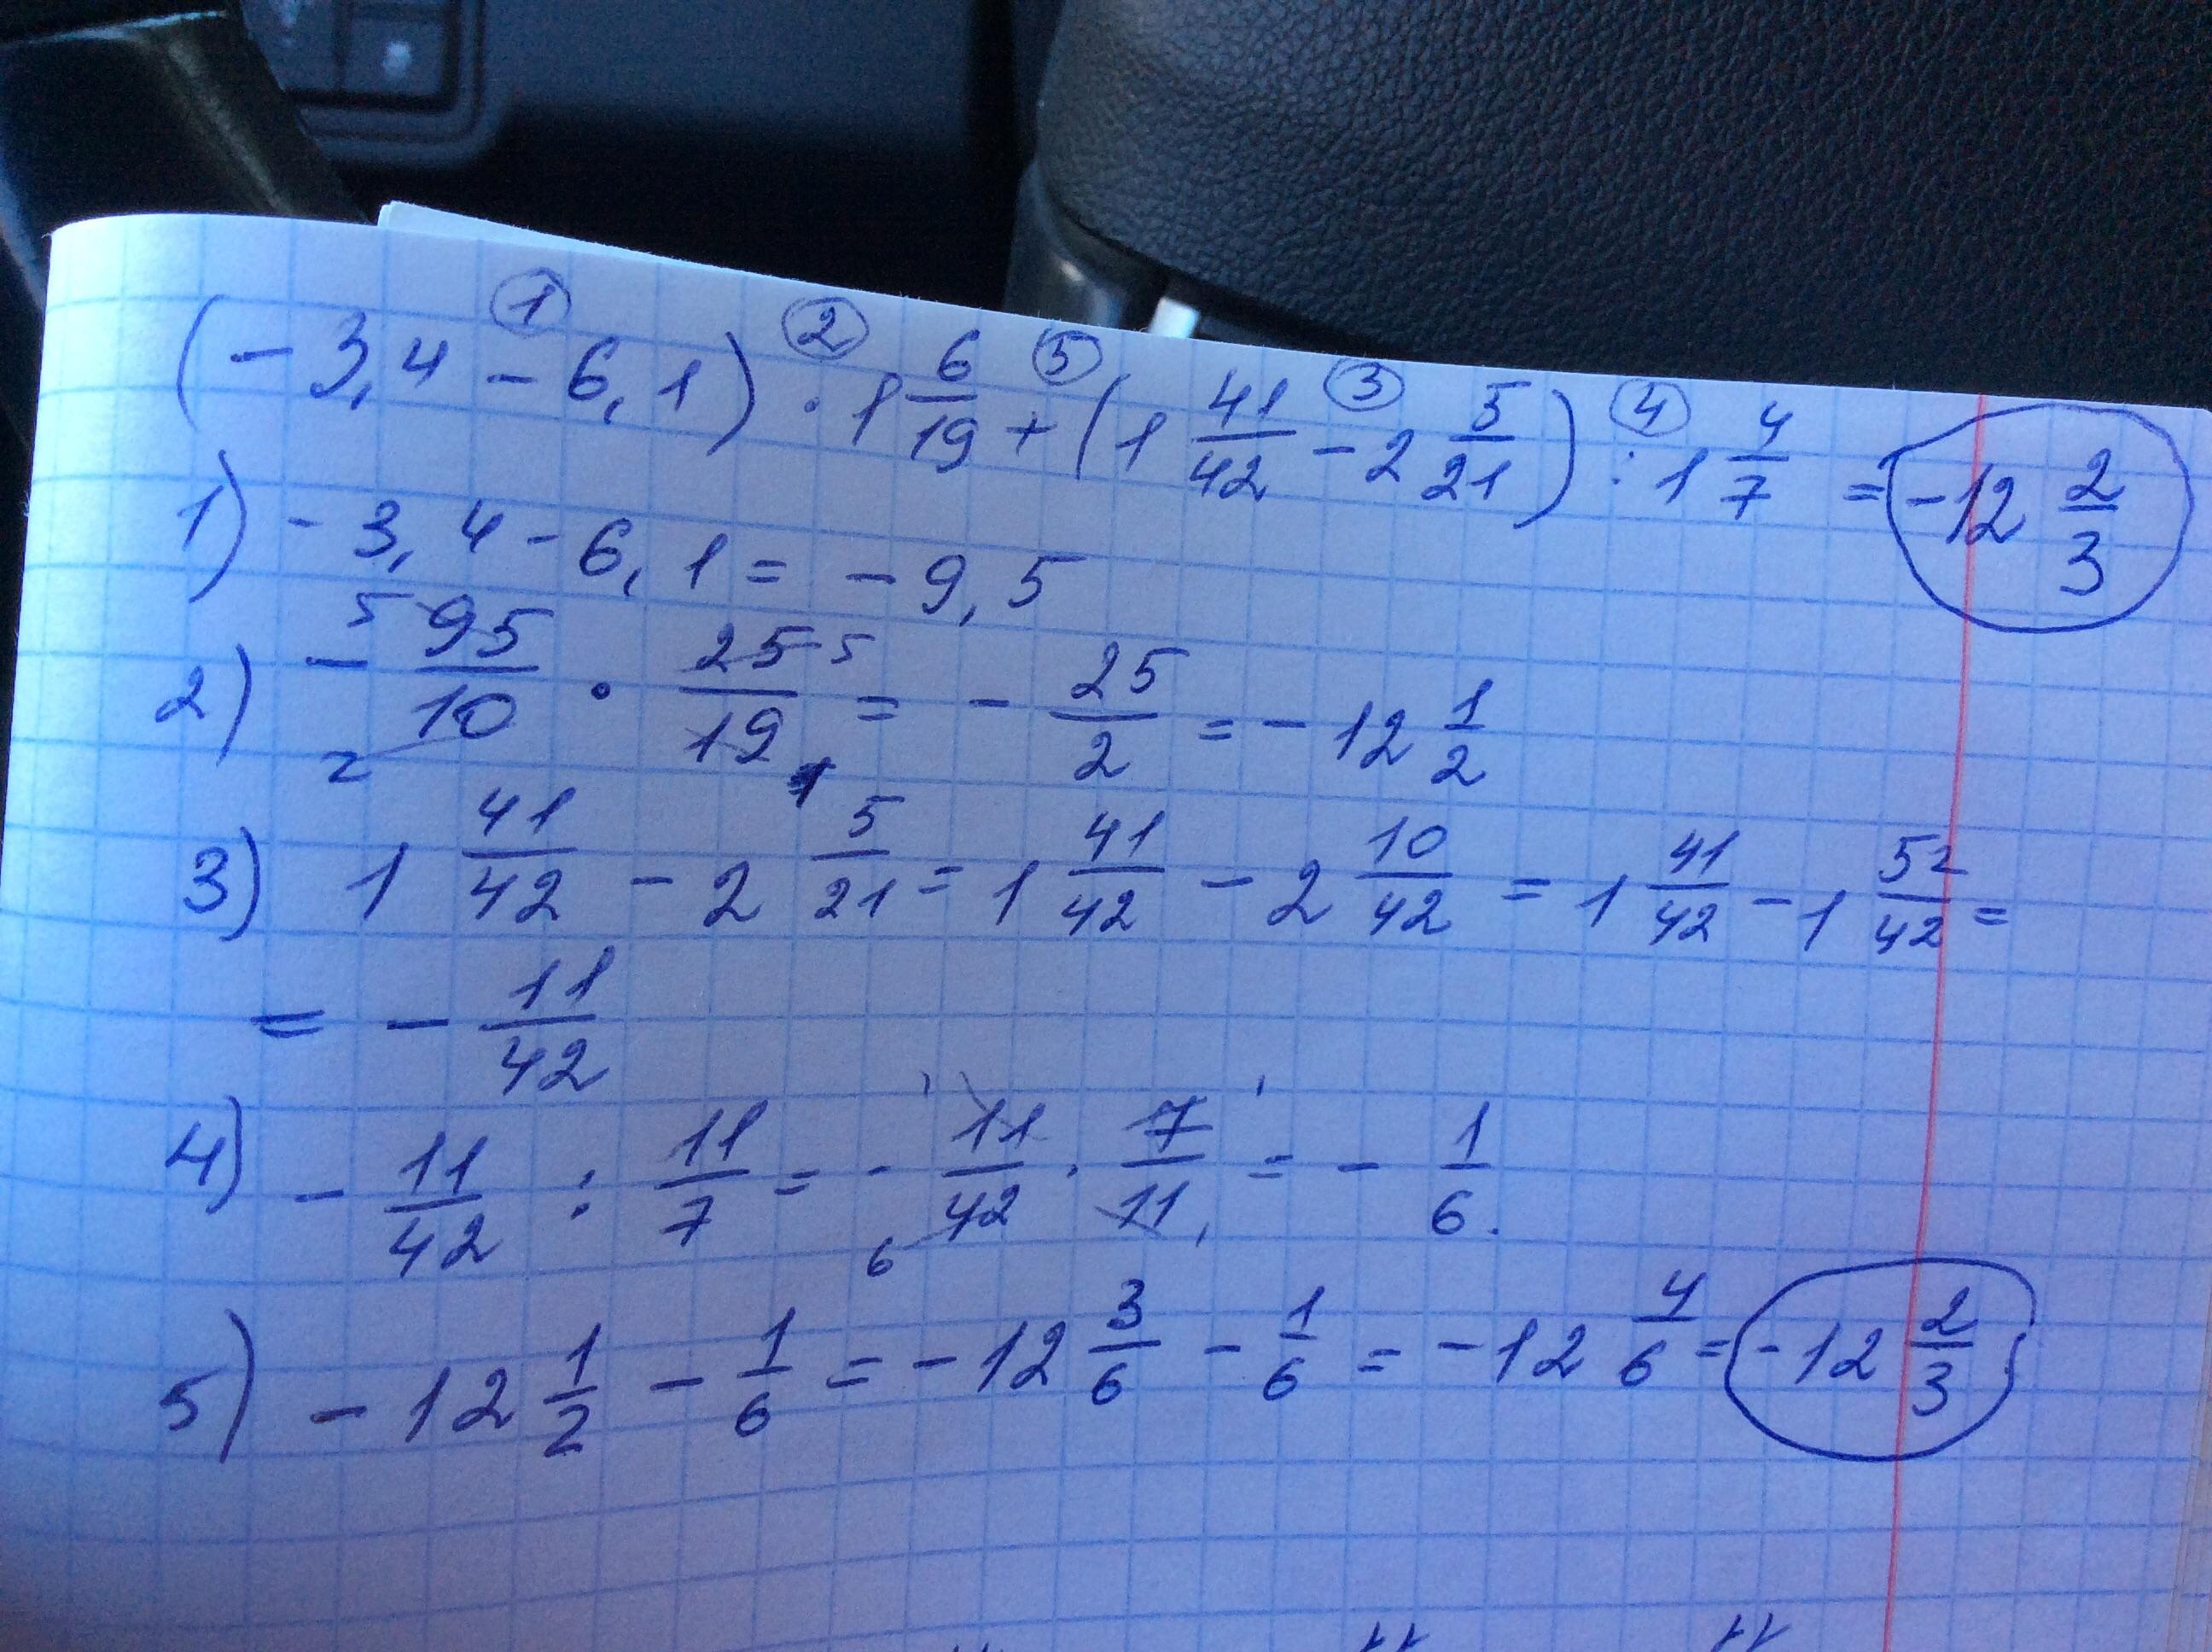 ① ② ⑤ ③ ④
(-3,4 - 6,1) · 1 6/19 + (1 41/42 - 2 5/21) : 1 4/7 = -12 2/3
1) -3,4 - 6,1 = -9,5
2) - 5 95/10 2 · 25 5/19 1 = - 25/2 = -12 1/2
3) 1 41/42 - 2 5/21 = 1 41/42 - 2 10/42 = 1 41/42 - 1 52/42 =
= - 11/42
4) - 11/42 : 11/7 = - 1 11/42 6 · 7 1/11 1 = - 1/6.
5) -12 1/2 - 1/6 = -12 3/6 - 1/6 = -12 4/6 = -12 2/3